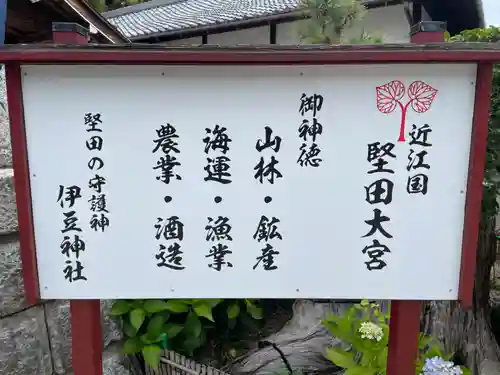 近江国
堅田大宮
御神徳
山林・鉱産
海運・漁業
農業・酒造
堅田の守護神
伊豆神社